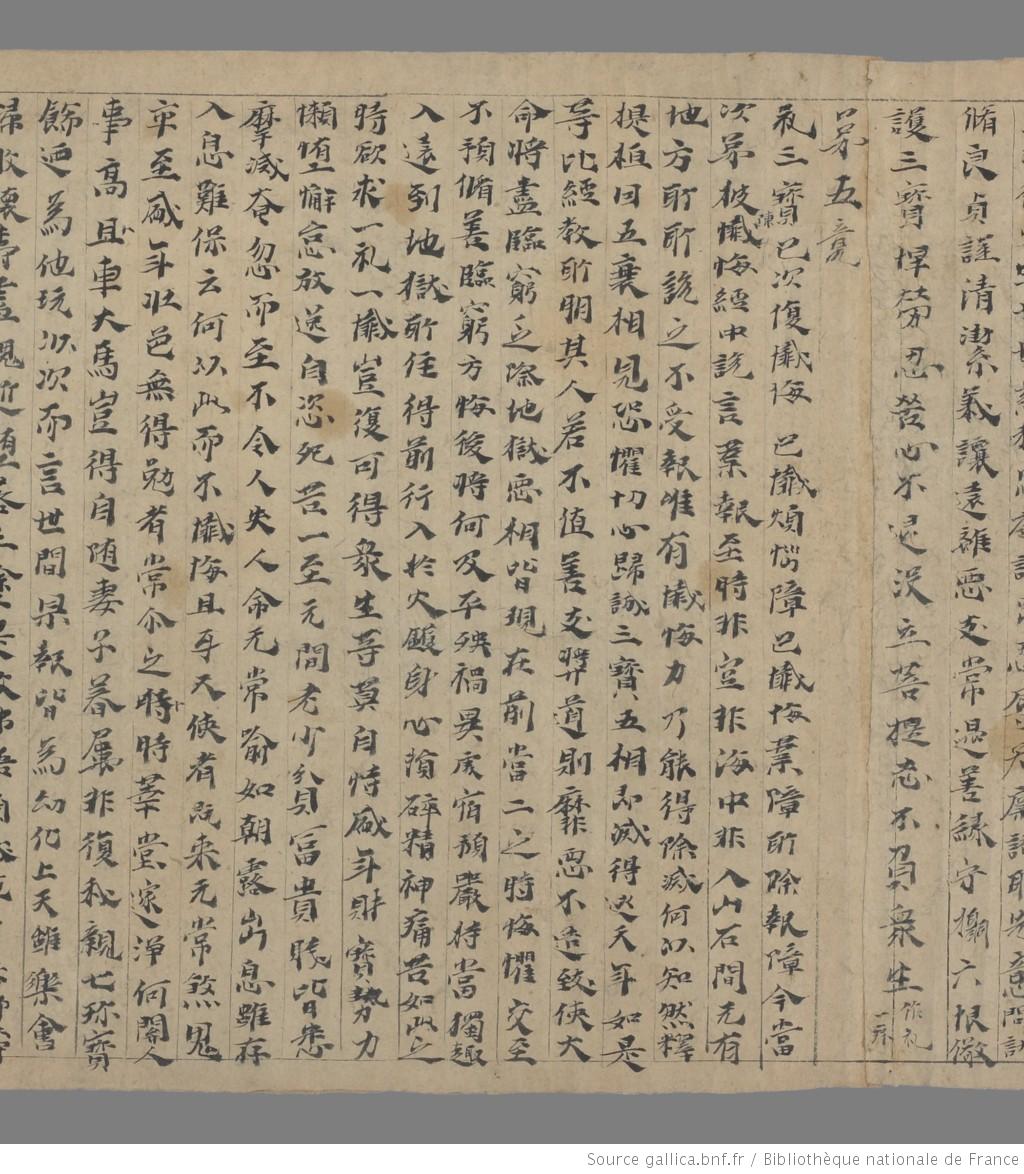 脩良貞謹清潔義讓遠離惡友常遇善緣守攝六根儆
護三寶悍勞忍苦心不退沒立菩提志不負衆生作礼一拜
第五竟
礼三寶已次復懺悔 已懺煩惱障已懺悔業障所除報障今當
次第披陳懺悔經中說言業報至時非空非海中非入山石間无有
地方所所說之不受報唯有懺悔力乃能得除滅何以知然釋
提桓因五衰相見恐懼切心歸誠三寶五相即滅得延天年如是
等比經教所明其人若不值善友獎道則靡惡不造致使大
命將盡臨窮之際地獄惡相皆現在前當二之時悔懼交至
不預脩善臨窮方悔後時何及乎殃禍異處宿預嚴待當獨趣
入遠到地獄所任得前行入於火鑊身心隤碎精神痛苦如此之
時欲求一礼一懺豈復可得衆生等莫自恃盛年財寶勢力
懶墮懈怠放逸自恣死苦一至无間老少貧富貴賤皆悉
摩滅奄忽而至不令人失人命无常喻如朝露出息雖存
入息難保云何以此而不懺悔且五天使者既来无常煞鬼
卒至盛年壯色無得勉者當尒之時時華堂邃浄何關人
事高且車大馬豈得自随妻子眷屬非復我親七珎寶
餝迺為他玩以次而言世間果報皆為幻化上天雖樂會
Source gallica.bnf.fr / Bibliothèque nationale de France